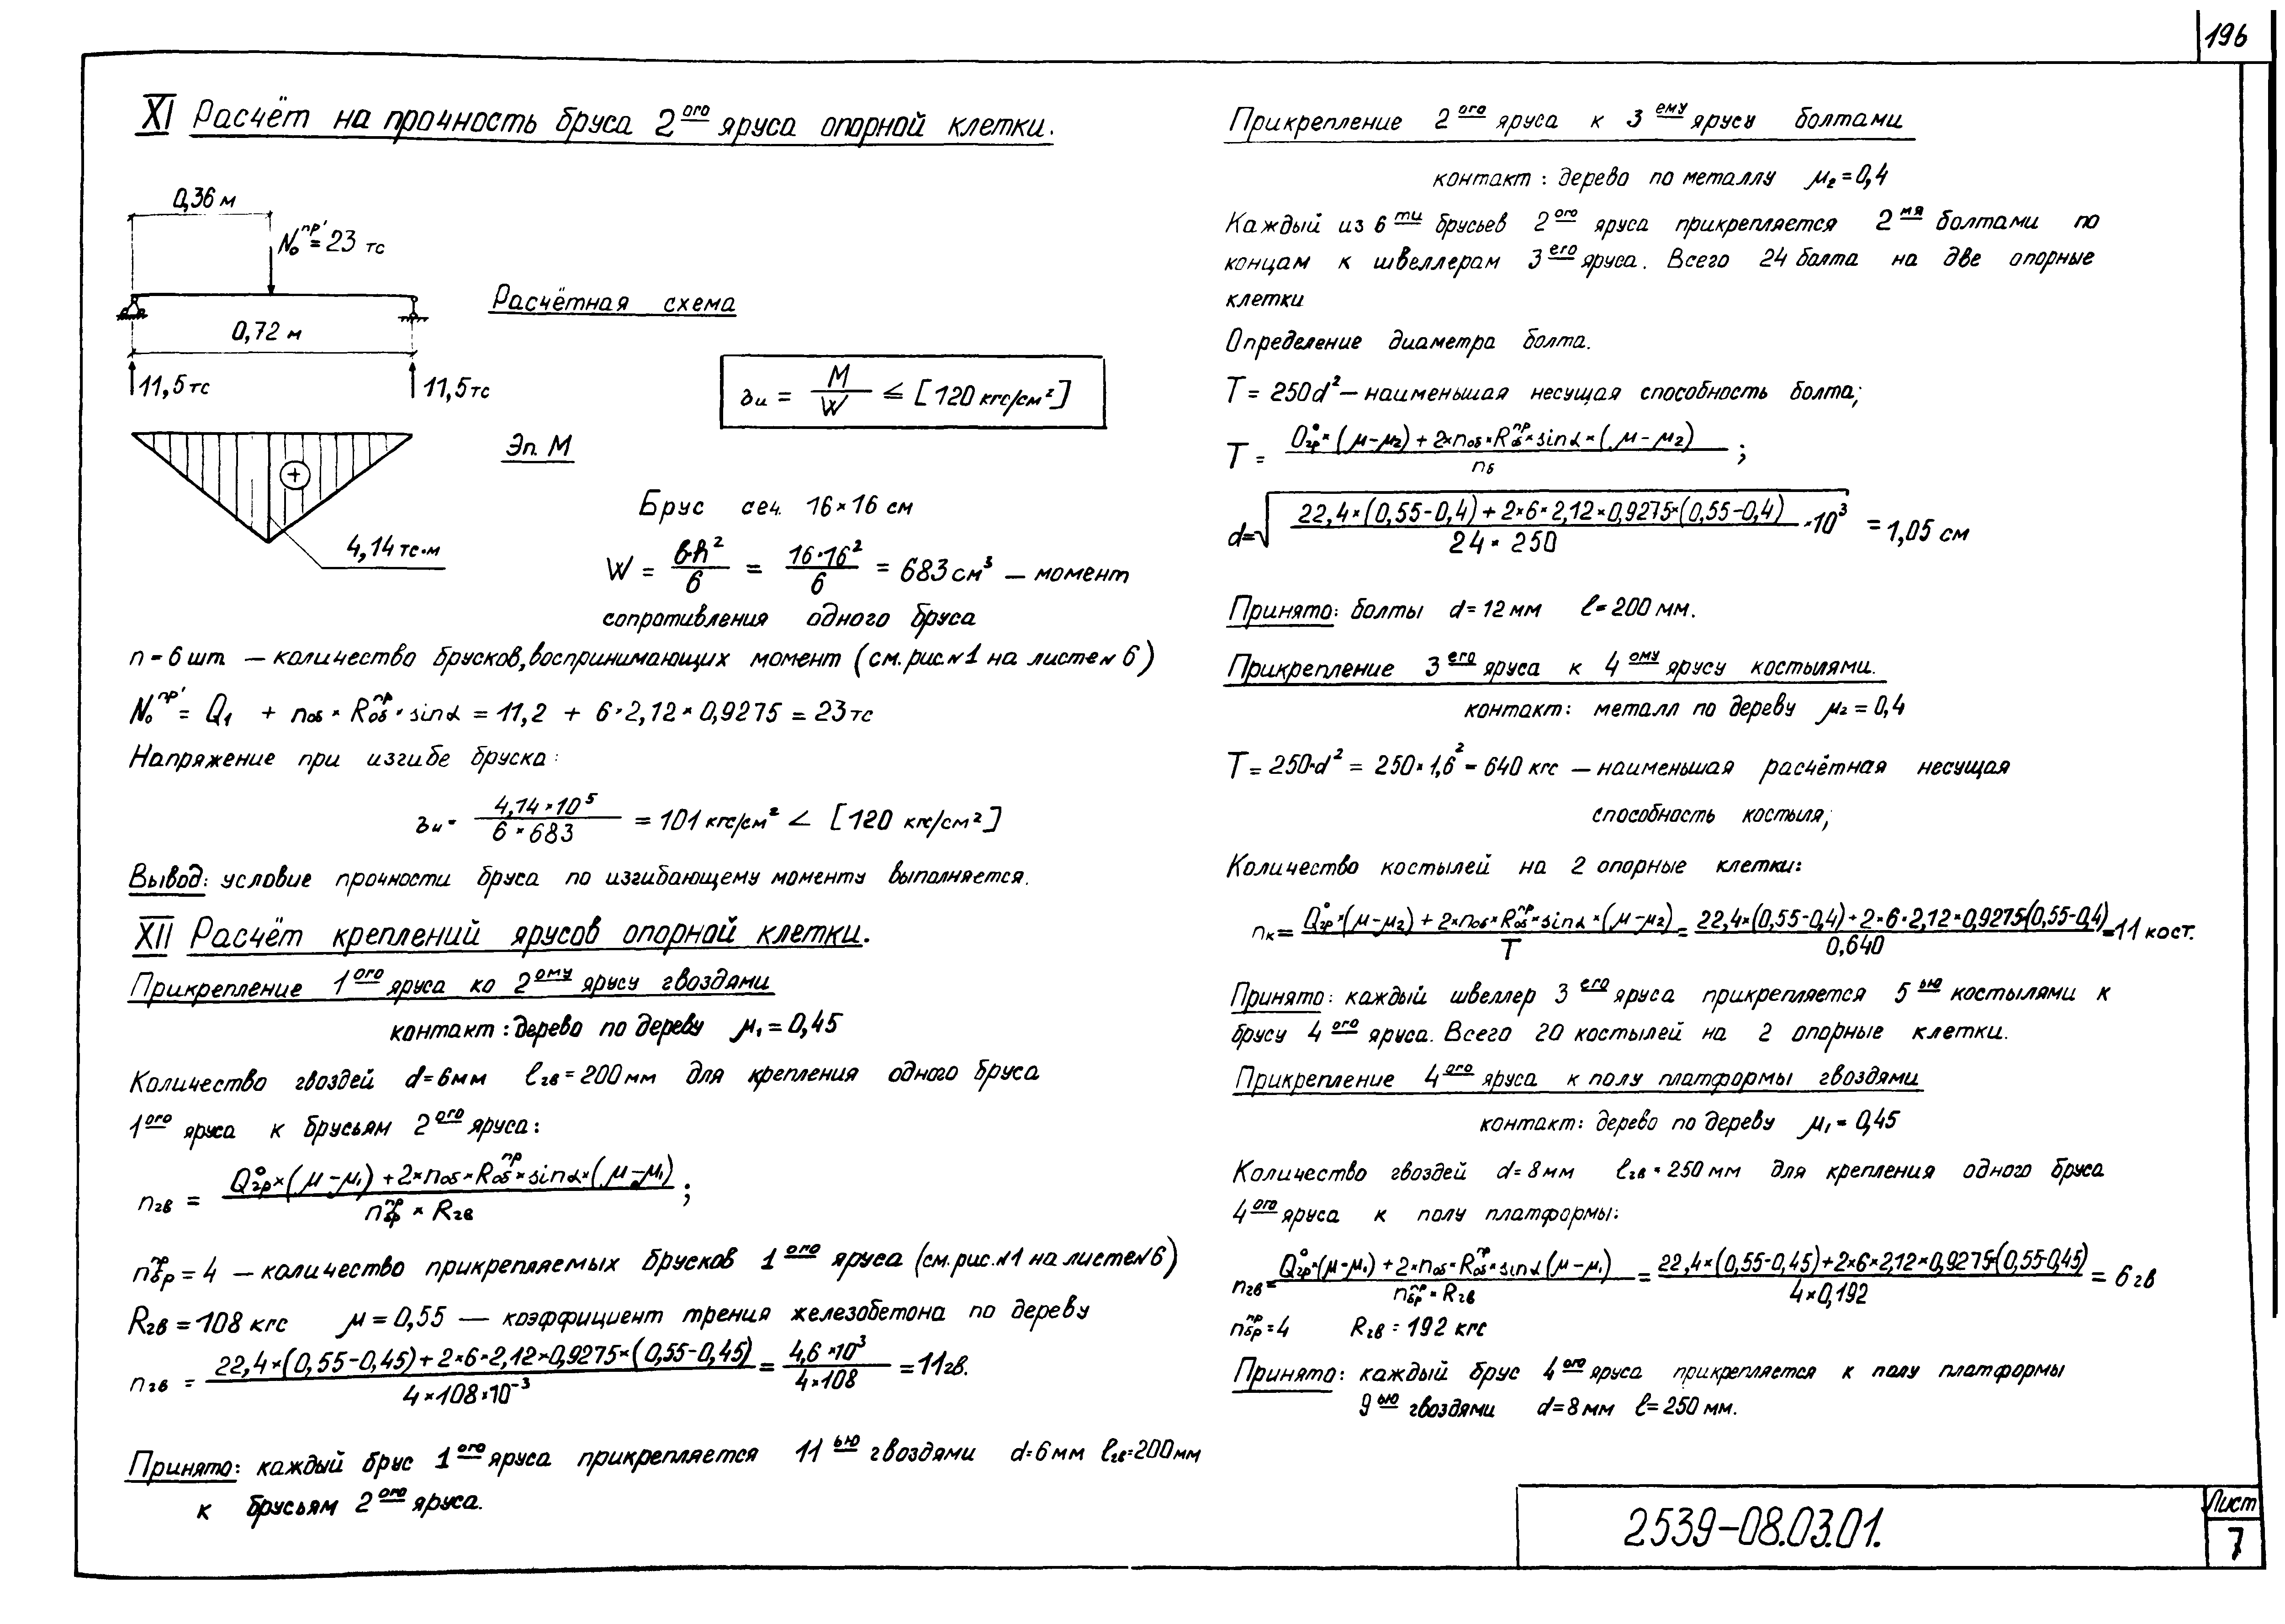 196
XI Расчёт на прочность бруса 2ого яруса опорной клетки.
0,36 м
N₀ пр' = 23 тс
Расчётная схема
0,72 м
11,5 тс
11,5 тс
зи = M/W ≤ [120 кгс/см²]
Эп. М
4,14 тс·м
Брус сеч. 16×16 см
W = bh²/6 = 16·16²/6 = 683 см³ — момент
сопротивления одного бруса
n = 6 шт — количество брусков, воспринимающих момент (см. рис. №1 на листе № 6)
N₀ пр' = Q₁ + nоб × Rоб пр × sinα = 11,2 + 6·2,12×0,9275 = 23 тс
Напряжение при изгибе бруска:
зи = 4,14×10⁵ / 6×683 = 101 кгс/см² < [120 кгс/см²]
Вывод: условие прочности бруса по изгибающему моменту выполняется.
XII Расчёт креплений ярусов опорной клетки.
Прикрепление 1ого яруса ко 2ому ярусу гвоздями
контакт: дерево по дереву μ₁ = 0,45
Количество гвоздей d=6мм ℓгв=200мм для крепления одного бруса
1ого яруса к брусьям 2ого яруса:
nгв = Q°гр×(μ-μ₁) + 2×nоб×Rоб пр×sinα×(μ-μ₁) / nбр пр × Rгв ;
nбр пр = 4 — количество прикрепляемых брусков 1ого яруса (см. рис. №1 на листе №6)
Rгв = 108 кгс μ = 0,55 — коэффициент трения железобетона по дереву
nгв = 22,4×(0,55-0,45)+2×6×2,12×0,9275×(0,55-0,45) / 4×108×10⁻³ = 4,6×10³ / 4×108 = 11гв.
Принято: каждый брус 1ого яруса прикрепляется 11ью гвоздями d=6мм ℓгв=200мм
к брусьям 2ого яруса.
Прикрепление 2ого яруса к 3ему ярусу болтами
контакт: дерево по металлу μ₂=0,4
Каждый из 6ти брусьев 2ого яруса прикрепляется 2мя болтами по
концам к швеллерам 3его яруса. Всего 24 болта на две опорные
клетки
Определение диаметра болта.
T = 250d² — наименьшая несущая способность болта;
T = Q°гр×(μ-μ₂)+2×nоб×Rоб пр×sinα×(μ-μ₂) / nб ;
d=√ 22,4×(0,55-0,4)+2×6×2,12×0,9275×(0,55-0,4) / 24×250 ×10³ = 1,05 см
Принято: болты d=12мм ℓ=200мм.
Прикрепление 3его яруса к 4ому ярусу костылями.
контакт: металл по дереву μ₂=0,4
T = 250·d² = 250×1,6² = 640 кгс — наименьшая расчётная несущая
способность костыля;
Количество костылей на 2 опорные клетки:
nк = Q°гр×(μ-μ₂)+2×nоб×Rоб пр×sinα×(μ-μ₂) / T = 22,4×(0,55-0,4)+2×6×2,12×0,9275×(0,55-0,4) / 0,640 = 11 кост.
Принято: каждый швеллер 3его яруса прикрепляется 5ью костылями к
брусу 4ого яруса. Всего 20 костылей на 2 опорные клетки.
Прикрепление 4ого яруса к полу платформы гвоздями
контакт: дерево по дереву μ₁=0,45
Количество гвоздей d=8мм ℓгв=250мм для крепления одного бруса
4ого яруса к полу платформы:
nгв = Q°гр×(μ-μ₁)+2×nоб×Rоб пр×sinα(μ-μ₁) / nбр пр×Rгв = 22,4×(0,55-0,45)+2×6×2,12×0,9275×(0,55-0,45) / 4×0,192 = 6гв
nбр пр=4 Rгв=192 кгс
Принято: каждый брус 4ого яруса прикрепляется к полу платформы
9ью гвоздями d=8мм ℓ=250мм.
2539-08.03.01.
Лист
7